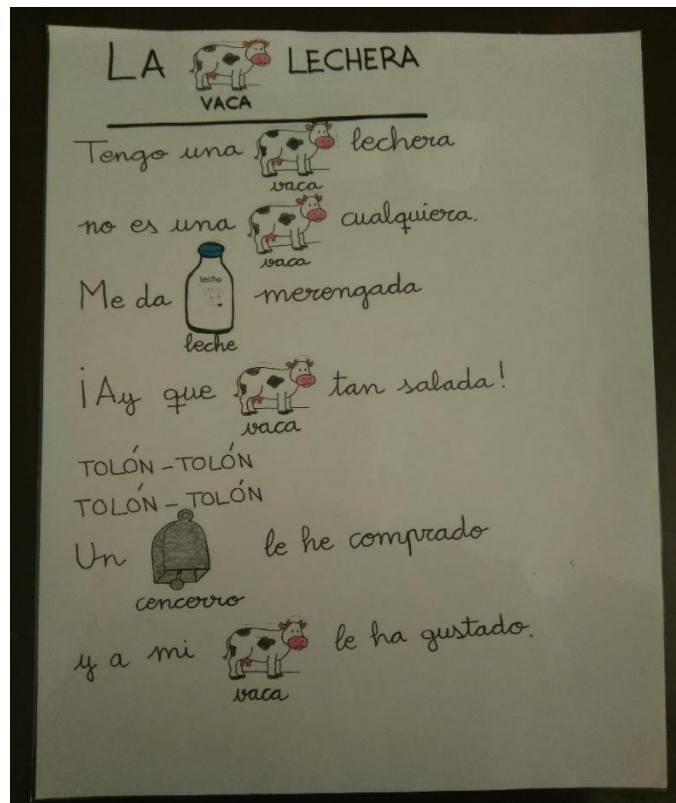 LA VACA LECHERA
Tengo una vaca lechera
no es una vaca cualquiera.
Me da leche leche merengada
¡Ay que vaca tan salada!
TOLÓN-TOLÓN
TOLÓN-TOLÓN
Un cencerro le he comprado
y a mi vaca le ha gustado.